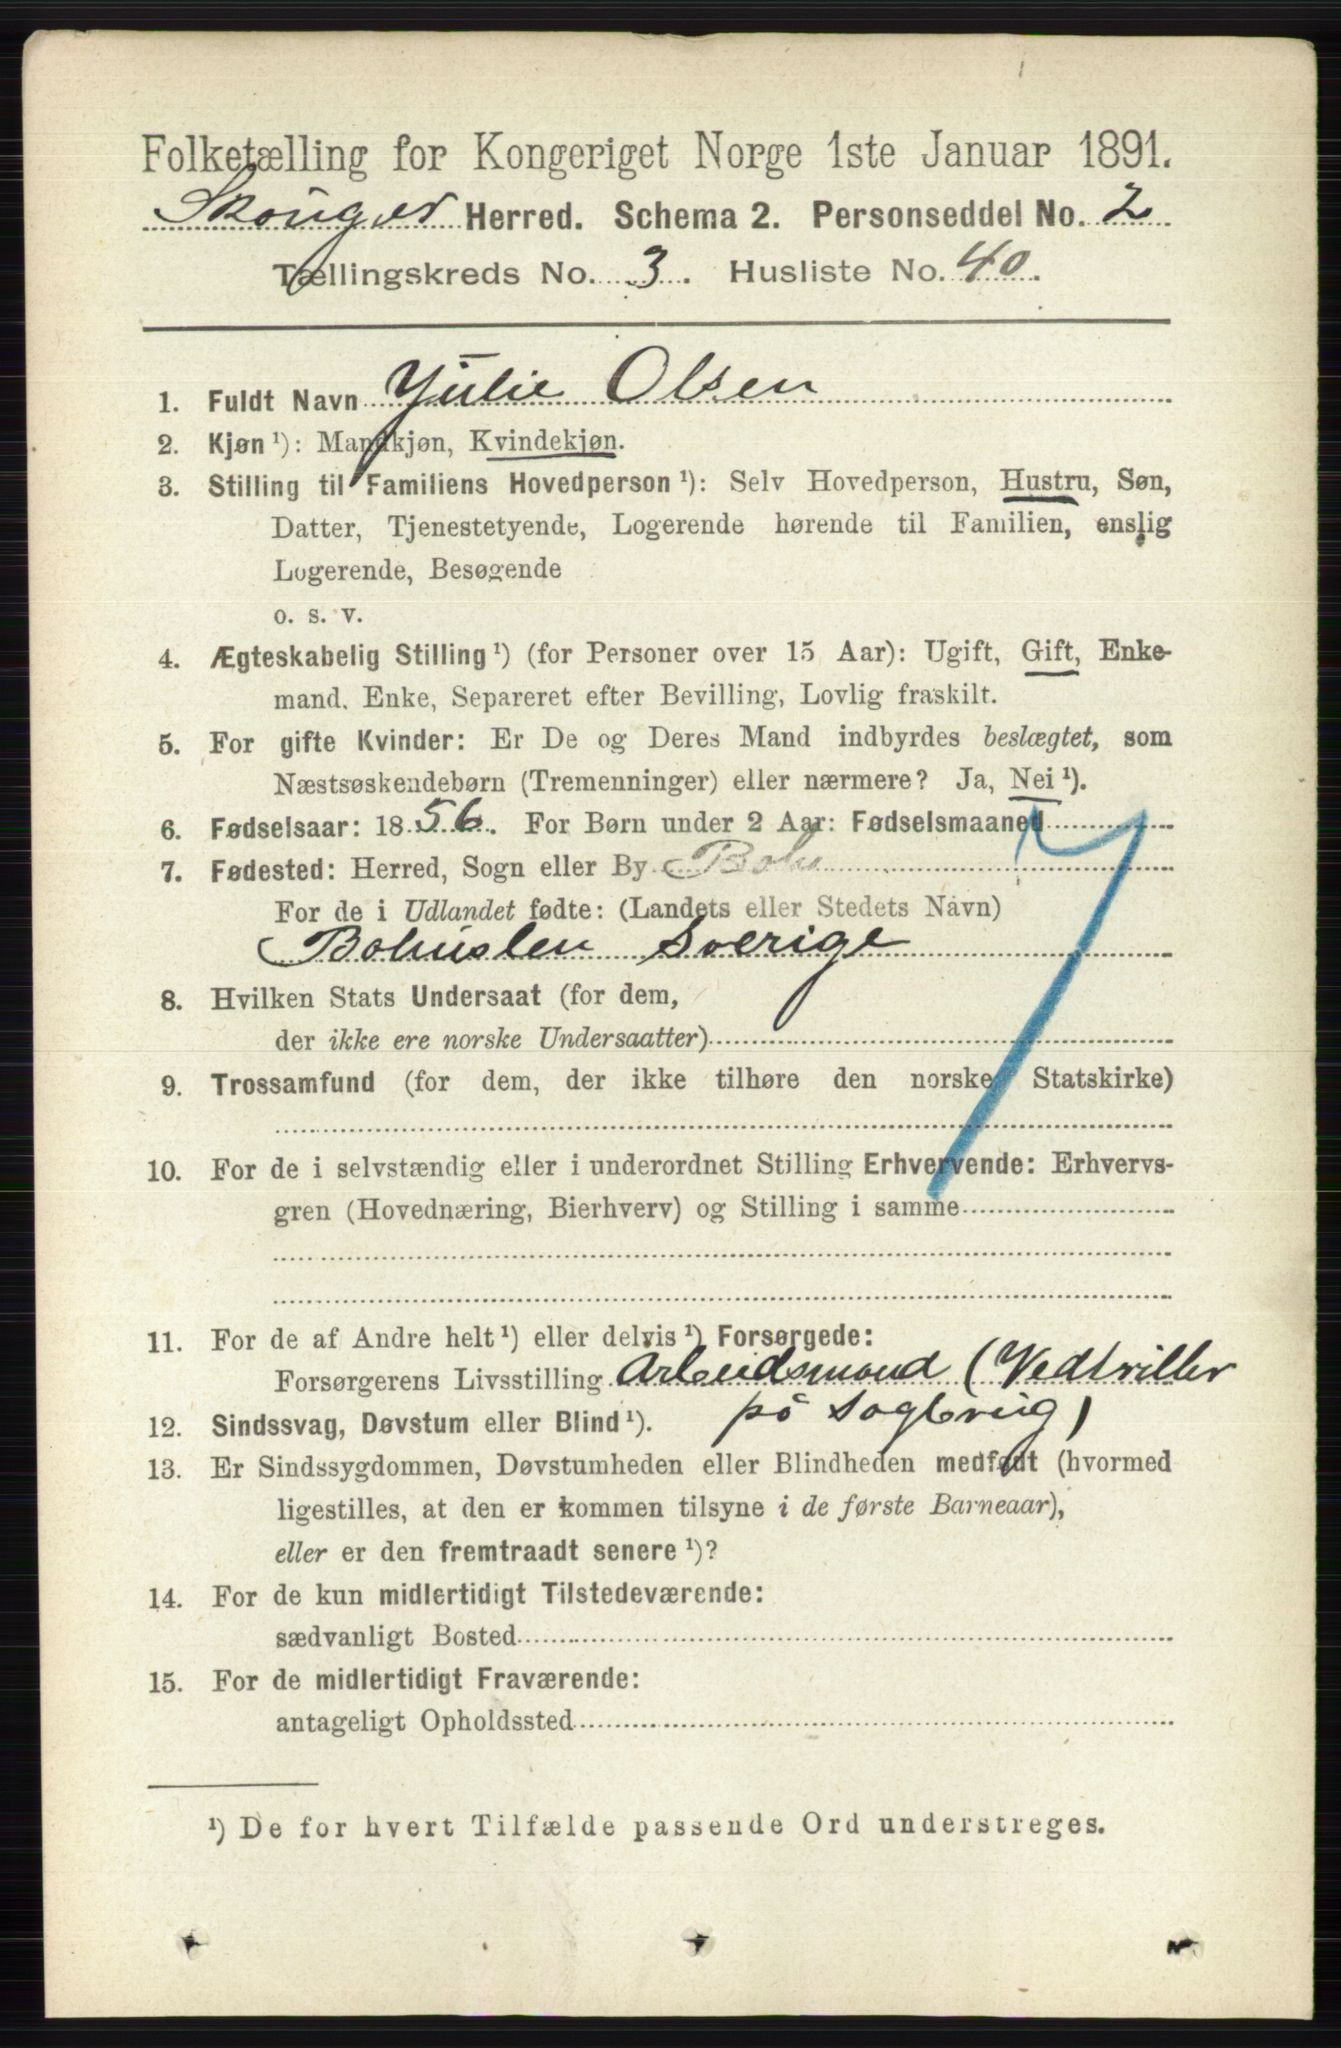 Folketælling for Kongeriget Norge 1ste Januar 1891.
Skouger Herred. Schema 2. Personseddel No. 2
Tællingskreds No. 3. Husliste No. 40.
1. Fuldt Navn Julie Olsen
2. Kjøn ¹): Mandkjøn, Kvindekjøn.
3. Stilling til Familiens Hovedperson ¹): Selv Hovedperson, Hustru, Søn,
Datter, Tjenestetyende, Logerende hørende til Familien, enslig
Logerende, Besøgende
o. s. v.
4. Ægteskabelig Stilling ¹) (for Personer over 15 Aar): Ugift, Gift, Enke-
mand, Enke, Separeret efter Bevilling, Lovlig fraskilt.
5. For gifte Kvinder: Er De og Deres Mand indbyrdes beslægtet, som
Næstsøskendebørn (Tremenninger) eller nærmere? Ja, Nei ¹).
6. Fødselsaar: 1856. For Børn under 2 Aar: Fødselsmaaned
7. Fødested: Herred, Sogn eller By Bohu
For de i Udlandet fødte: (Landets eller Stedets Navn)
Bohuslen Sverige
8. Hvilken Stats Undersaat (for dem,
der ikke ere norske Undersaatter)
9. Trossamfund (for dem, der ikke tilhøre den norske Statskirke)
10. For de i selvstændig eller i underordnet Stilling Erhvervende: Erhvervs-
gren (Hovednæring, Bierhverv) og Stilling i samme
11. For de af Andre helt ¹) eller delvis ¹) Forsørgede:
Forsørgerens Livsstilling Arbeidsmand (Vedtriller
på Sagbrug)
12. Sindssvag, Døvstum eller Blind ¹).
13. Er Sindssygdommen, Døvstumheden eller Blindheden medfødt (hvormed
ligestilles, at den er kommen tilsyne i de første Barneaar),
eller er den fremtraadt senere ¹)?
14. For de kun midlertidigt Tilstedeværende:
sædvanligt Bosted
15. For de midlertidigt Fraværende:
antageligt Opholdssted
¹) De for hvert Tilfælde passende Ord understreges.